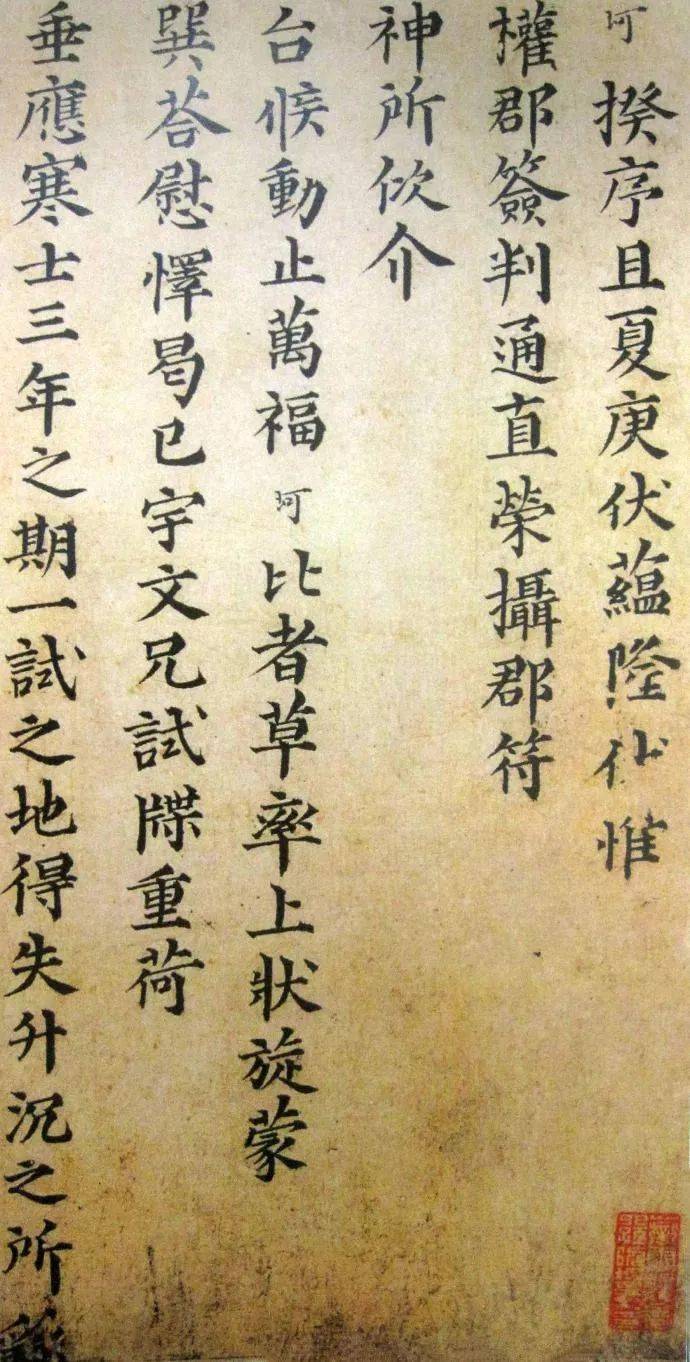 珂揆序且夏庚伏蘊隆伏惟
權郡簽判通直榮攝郡符
神所佽介
台候動止萬福珂比者草率上狀旋蒙
巽荅慰懌曷已宇文兄試牒重荷
垂應寒士三年之期一試之地得失升沉之所